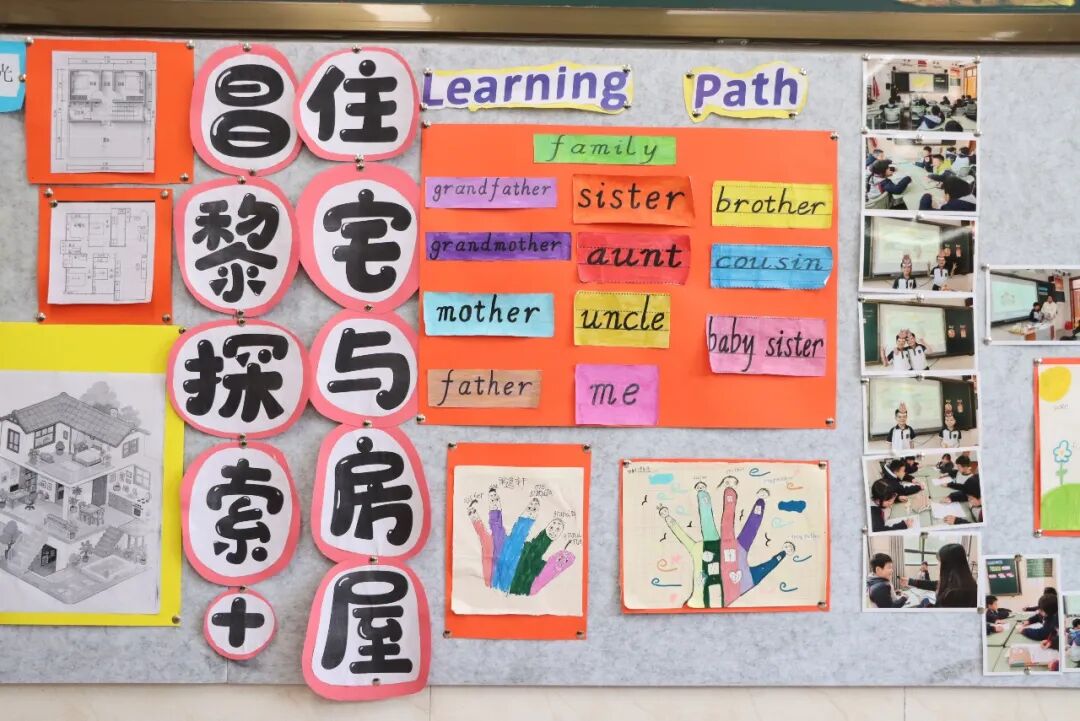 昌黎探索+
住宅与房屋
Learning Path
family
grandfather
sister
brother
grandmother
aunt
cousin
mother
uncle
baby sister
father
me
sister